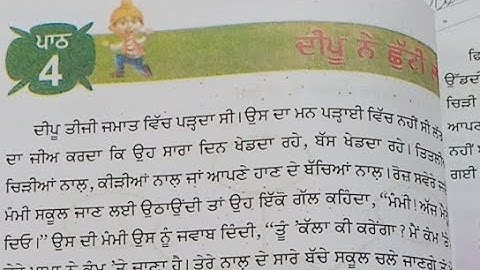 ਪਾਠ
4
ਦੀਪੂ ਨੇ ਛੁੱਟੀ
ਦੀਪੂ ਤੀਜੀ ਜਮਾਤ ਵਿੱਚ ਪੜ੍ਹਦਾ ਸੀ। ਉਸ ਦਾ ਮਨ ਪੜ੍ਹਾਈ ਵਿੱਚ ਨਹੀਂ ਸੀ
ਦਾ ਜੀਅ ਕਰਦਾ ਕਿ ਉਹ ਸਾਰਾ ਦਿਨ ਖੇਡਦਾ ਰਹੇ, ਬੱਸ ਖੇਡਦਾ ਰਹੇ।
ਚਿੜੀਆਂ ਨਾਲ਼, ਕੀੜੀਆਂ ਨਾਲ਼ ਜਾਂ ਆਪਣੇ ਹਾਣ ਦੇ ਬੱਚਿਆਂ ਨਾਲ਼। ਰੋਜ਼ ਸਵੇਰੇ
ਮੰਮੀ ਸਕੂਲ ਜਾਣ ਲਈ ਉਠਾਉਂਦੀ ਤਾਂ ਉਹ ਇੱਕੋ ਗੱਲ ਕਹਿੰਦਾ, “ਮੰਮੀ! ਅੱਜ
ਦਿਓ।” ਉਸ ਦੀ ਮੰਮੀ ਉਸ ਨੂੰ ਜਵਾਬ ਦਿੰਦੀ, “ਤੂੰ ’ਕੱਲਾ ਕੀ ਕਰੇਂਗਾ? ਮੈਂ ਕੰਮ ’ਤੇ
ਨੇ ਕੰਮ ’ਤੇ ਜਾਣਾ ਹੈ। ਤੇਰੇ ਨਾਲ਼ ਦੇ ਸਾਰੇ ਬੱਚੇ ਸਕੂਲ ਚਲੇ ਜਾਣਗੇ
ਉੱਡਦੀ
ਚਿੜੀ
ਆਪਣ
ਨਹੀਂ
ਗਈ